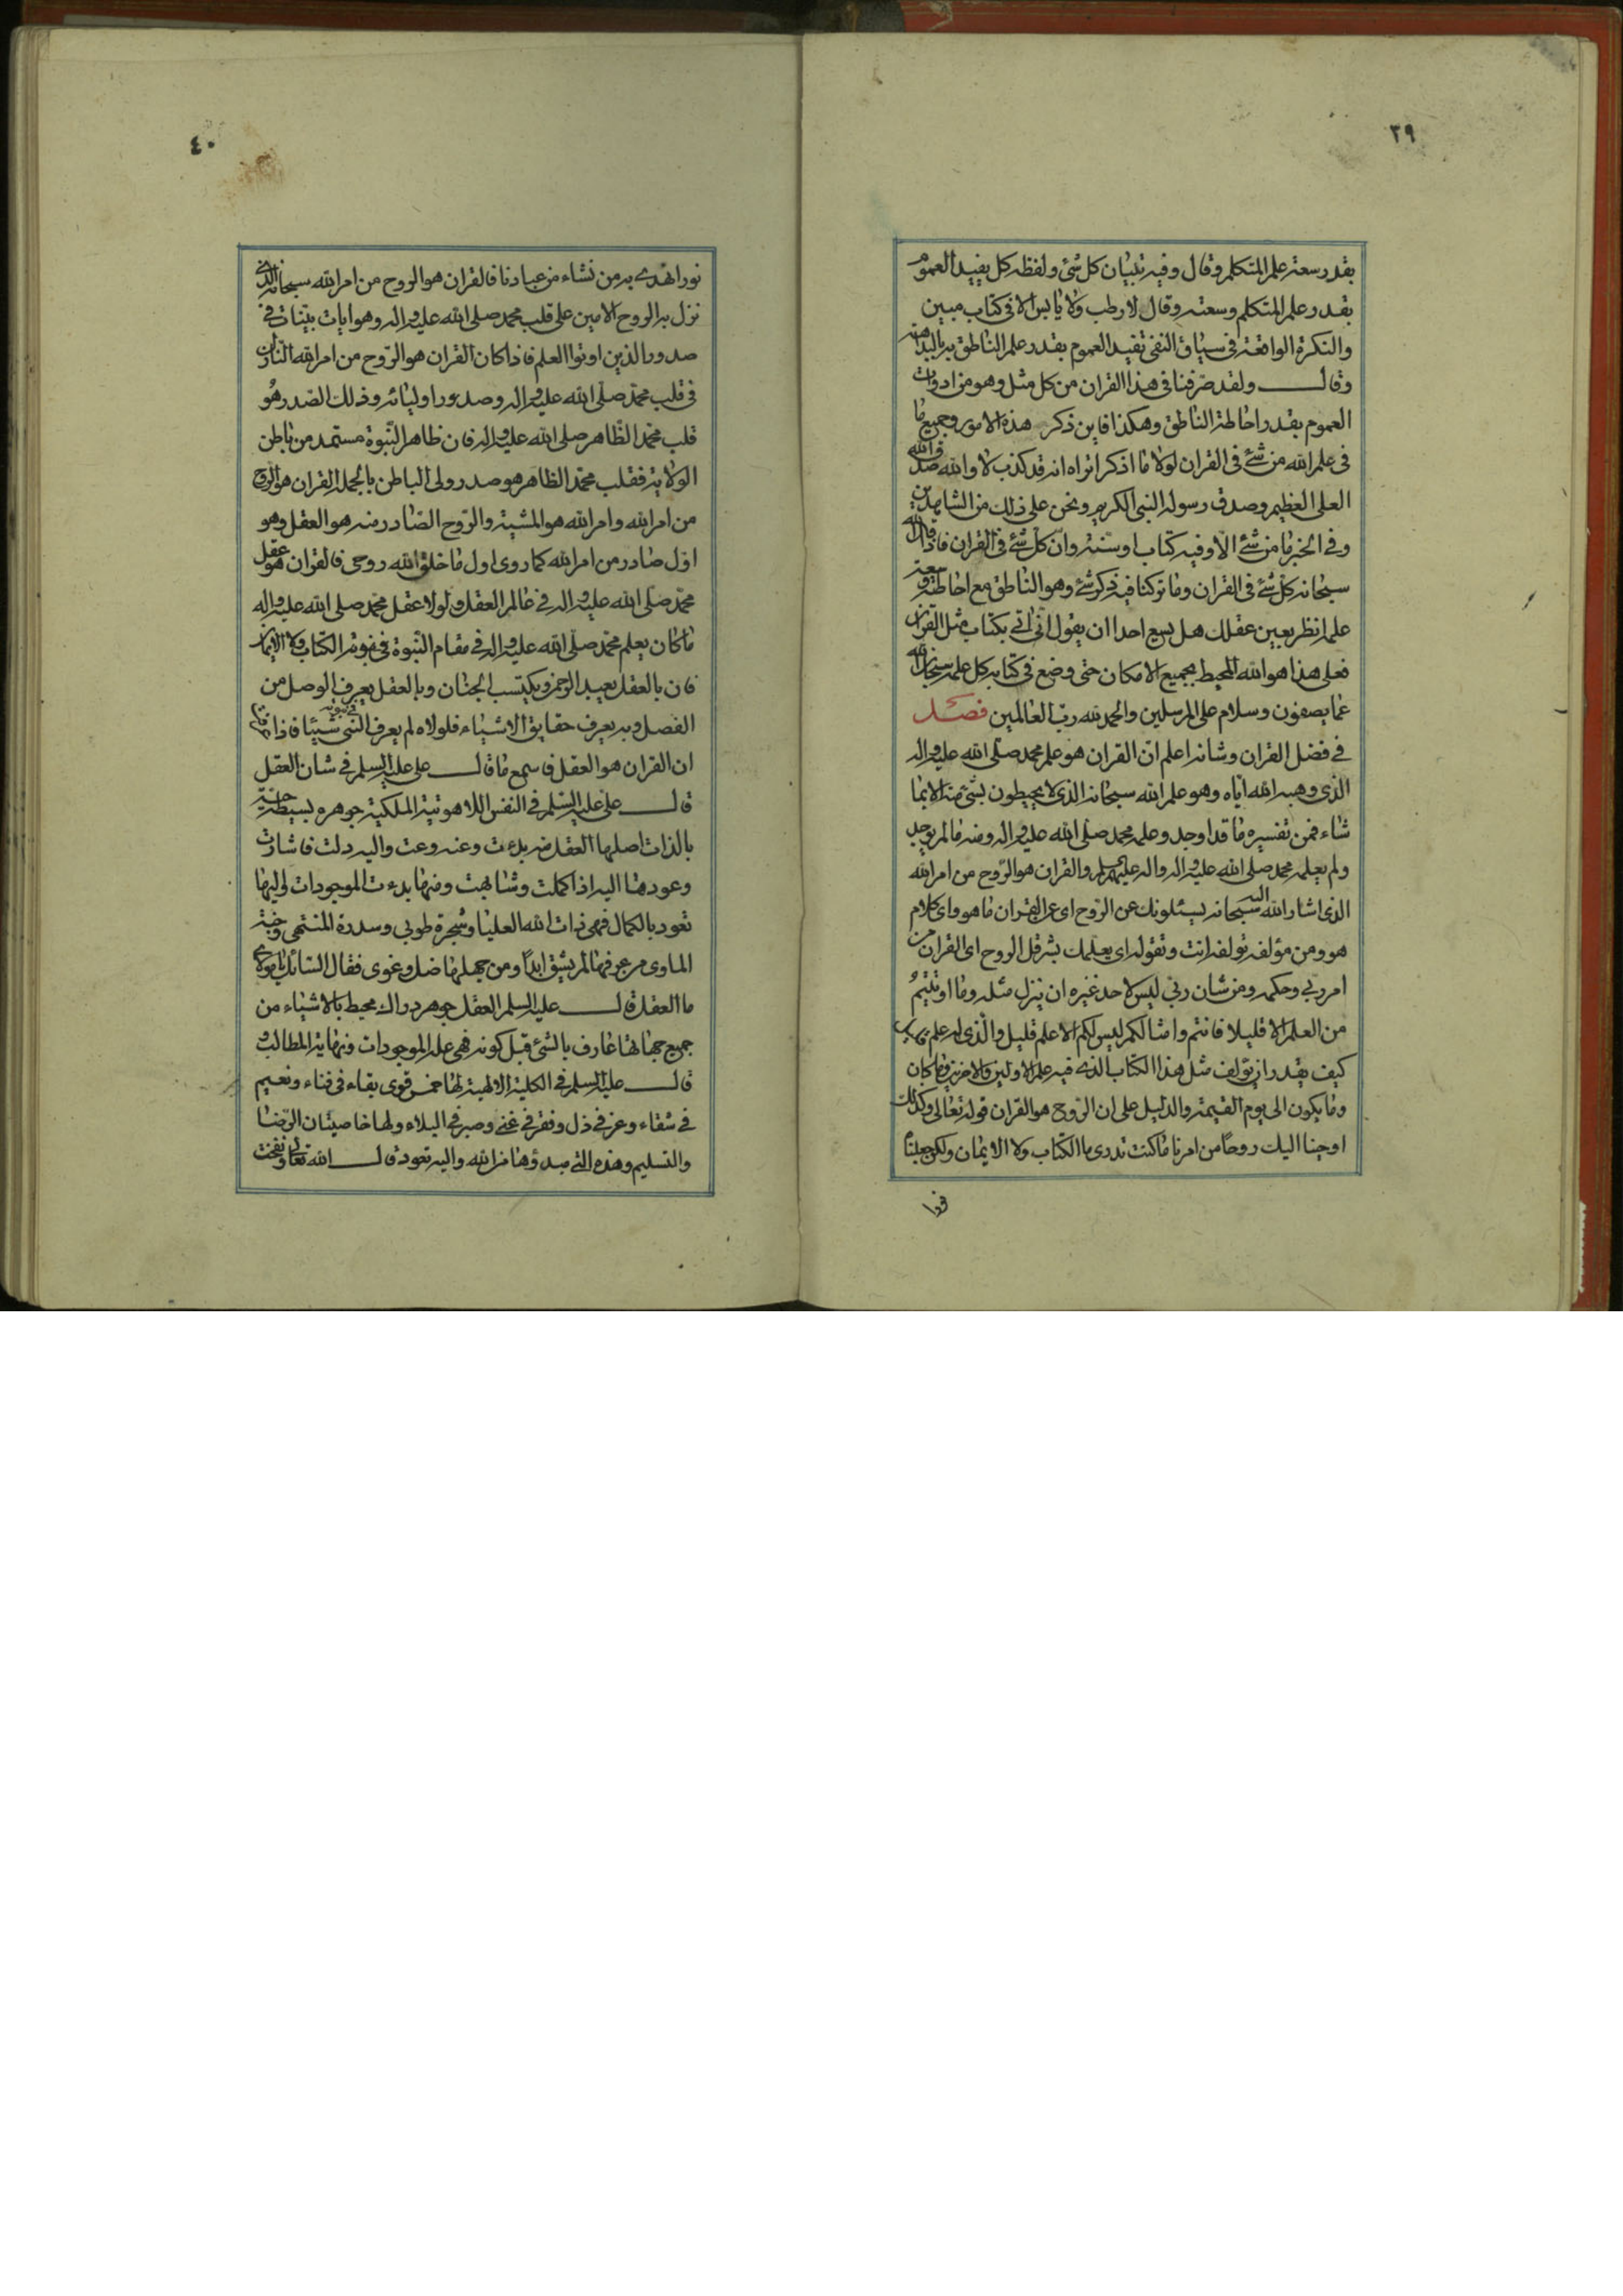 ٣٩
بقدر سعة علم المتكلم وقال وفيه تبيان كل شئ ولفظه كل يفيد العموم
بقدر علم المتكلم وسعته وقال لا رطب ولا يابس الا فى كتاب مبين
والنكرة الواقعة فى سياق النفى تفيد العموم بقدر علم الناطق به بالبداهة
وقال ولقد صرفنا فى هذا القران من كل مثل وهو من ادوات
العموم بقدر احاطة الناطق وهكذا فاين ذكر هذه الامور وجميع ما
فى علم الله من شئ فى القران لولا ما اذكر اتراه انه قد كذب لا والله صدق الله
العلى العظيم وصدق رسوله النبى الكريم ونحن على ذلك من الشاهدين
وفى الخبر ما من شئ الا وفيه كتاب او سنة وان كل شئ فى القران فاذا قال الله
سبحانه كل شئ فى القران وما تركنا فيه ذكر شئ وهو الناطق مع احاطته وسعة
علمه انظر بعين عقلك هل يسع احدا ان يقول انى اتى بكتاب مثل القران
فعلى هذا هو الله المحيط بجميع الامكان حتى وضع فى كتابه كل علمه سبحان الله
عما يصفون وسلام على المرسلين والحمد لله رب العالمين فصل
فى فضل القران وشانه اعلم ان القران هو علم محمد صلى الله عليه واله
الذى وهبه الله اياه وهو علم الله سبحانه الذى لا يحيطون بشئ منه الا بما
شاء فمن تفسيره ما قد اوجد وعلمه محمد صلى الله عليه واله ومنه ما لم يوجد
ولم يعلمه محمد صلى الله عليه واله واله عليهم السلم والقران هو الروح من امر الله
الذى اشار الله اليه سبحانه يسئلونك عن الروح اى عن القران ما هو واى كلام
هو ومن مؤلفه تولفه انت وتقوله اى يعلمك بشر قل الروح اى القران من
امر ربى وحكمه ومن شان ربى ليس لاحد غيره ان ينزل مثله وما اوتيتم
من العلم الا قليلا فانتم وامثالكم ليس لكم الا علم قليل والذى له علم
كيف يقدر ان يولف مثل هذا الكتاب الذى فيه علم الاولين والاخرين وما كان
وما يكون الى يوم القيمة والدليل على ان الروح هو القران قوله تعالى وكذلك
اوحينا اليك روحا من امرنا ما كنت تدرى ما الكتاب ولا الايمان ولكن جعلناه
نورا
٤٠
نورا نهدى به من نشاء من عبادنا فالقران هو الروح من امر الله سبحانه الذى
نزل به الروح الامين على قلب محمد صلى الله عليه واله وهو ايات بينات فى
صدور الذين اوتوا العلم فاذا كان القران هو الروح من امر الله النازل
فى قلب محمد صلى الله عليه واله وصدور اوليائه وذلك الصدر هو
قلب محمد الظاهر صلى الله عليه واله فان ظاهر النبوة مستمد من باطن
الولاية فقلب محمد الظاهر هو صدر ولى الباطن بالجملة القران هو الروح
من امر الله وامر الله هو المشية والروح الصادر منه هو العقل وهو
اول صادر من امر الله كما روى اول ما خلق الله روحى فالقران هو عقل
محمد صلى الله عليه واله فى عالم العقل ولولا عقل محمد صلى الله عليه واله
ما كان يعلم محمد صلى الله عليه واله فى مقام النبوة فى نبوته الكتاب ولا الايمان
فان بالعقل يعبد الرحمن ويكتسب الجنان وبالعقل يعرف الوصل من
الفصل وبه يعرف حقايق الاشياء فلولاه لم يعرف النبى فى نبوته شيئا فاذا
ان القران هو العقل فاسمع ما قال على عليه السلم فى شان العقل
قال على عليه السلم فى النفس اللاهوتية الملكية جوهره بسيطة حية
بالذات اصلها العقل منه بدءت وعنه وعت واليه دلت فاشارت
وعودها اليه اذا كملت وشابهت ومنها بدءت الموجودات واليها
تعود بالكمال فهى ذات الله العليا وشجرة طوبى وسدرة المنتهى وجنة
الماوى من عرفها لم يشق ابدا ومن جهلها ضل وغوى فقال السائل يا مولاى
ما العقل قال عليه السلم العقل جوهر دراك محيط بالاشياء من
جميع جهاتها عارف بالشئ قبل كونه فهى علة الموجودات ونهاية المطالب و
قال عليه السلم فى الكلية الالهية لها خمس قوى بقاء فى فناء ونعيم
فى شقاء وعز فى ذل وفقر فى غنى وصبر فى البلاء ولها خاصيتان الرضا
والتسليم وهذه التى مبدؤها من الله واليه تعود قال الله تعالى ونفخت